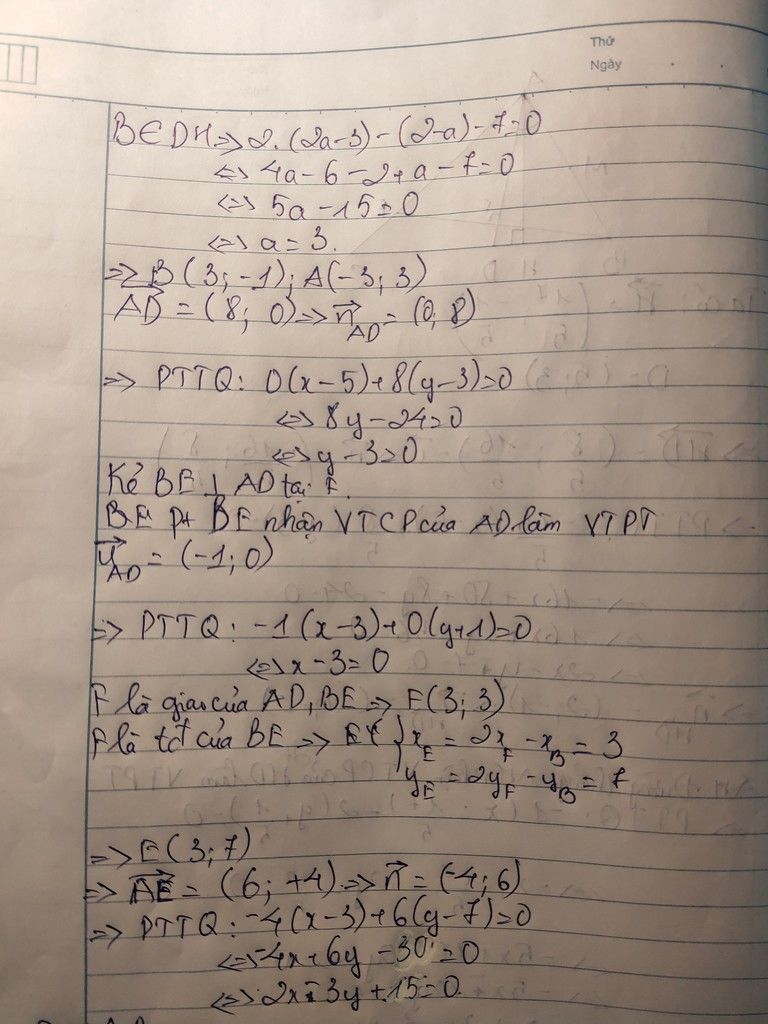 Thứ
Ngày
B∈DH => 2.(2a-3) - (2-a) - 7 = 0
<=> 4a - 6 - 2 + a - 7 = 0
<=> 5a - 15 = 0
<=> a = 3.
=> B(3; -1); A(-3; 3)
$\overrightarrow{AD}$ = (8; 0) => $\vec{n}_{AD}$ = (0; 8)
=> PTTQ: 0(x-5) + 8(y-3) = 0
<=> 8y - 24 = 0
<=> y - 3 = 0
Kẻ BE ⊥ AD tại F.
pt BE nhận VTCP của AD làm VTPT
$\vec{u}_{AD}$ = (-1; 0)
=> PTTQ: -1(x-3) + 0(y+1) = 0
<=> x - 3 = 0
F là giao của AD, BE => F(3; 3)
F là tđ của BE => { x_E = 2x_F - x_B = 3
y_E = 2y_F - y_B = 7
=> E(3; 7)
=> $\overrightarrow{AE}$ = (6; +4) => $\vec{n}$ = (-4; 6)
=> PTTQ: -4(x-3) + 6(y-7) = 0
<=> -4x + 6y - 30 = 0
<=> 2x - 3y + 15 = 0